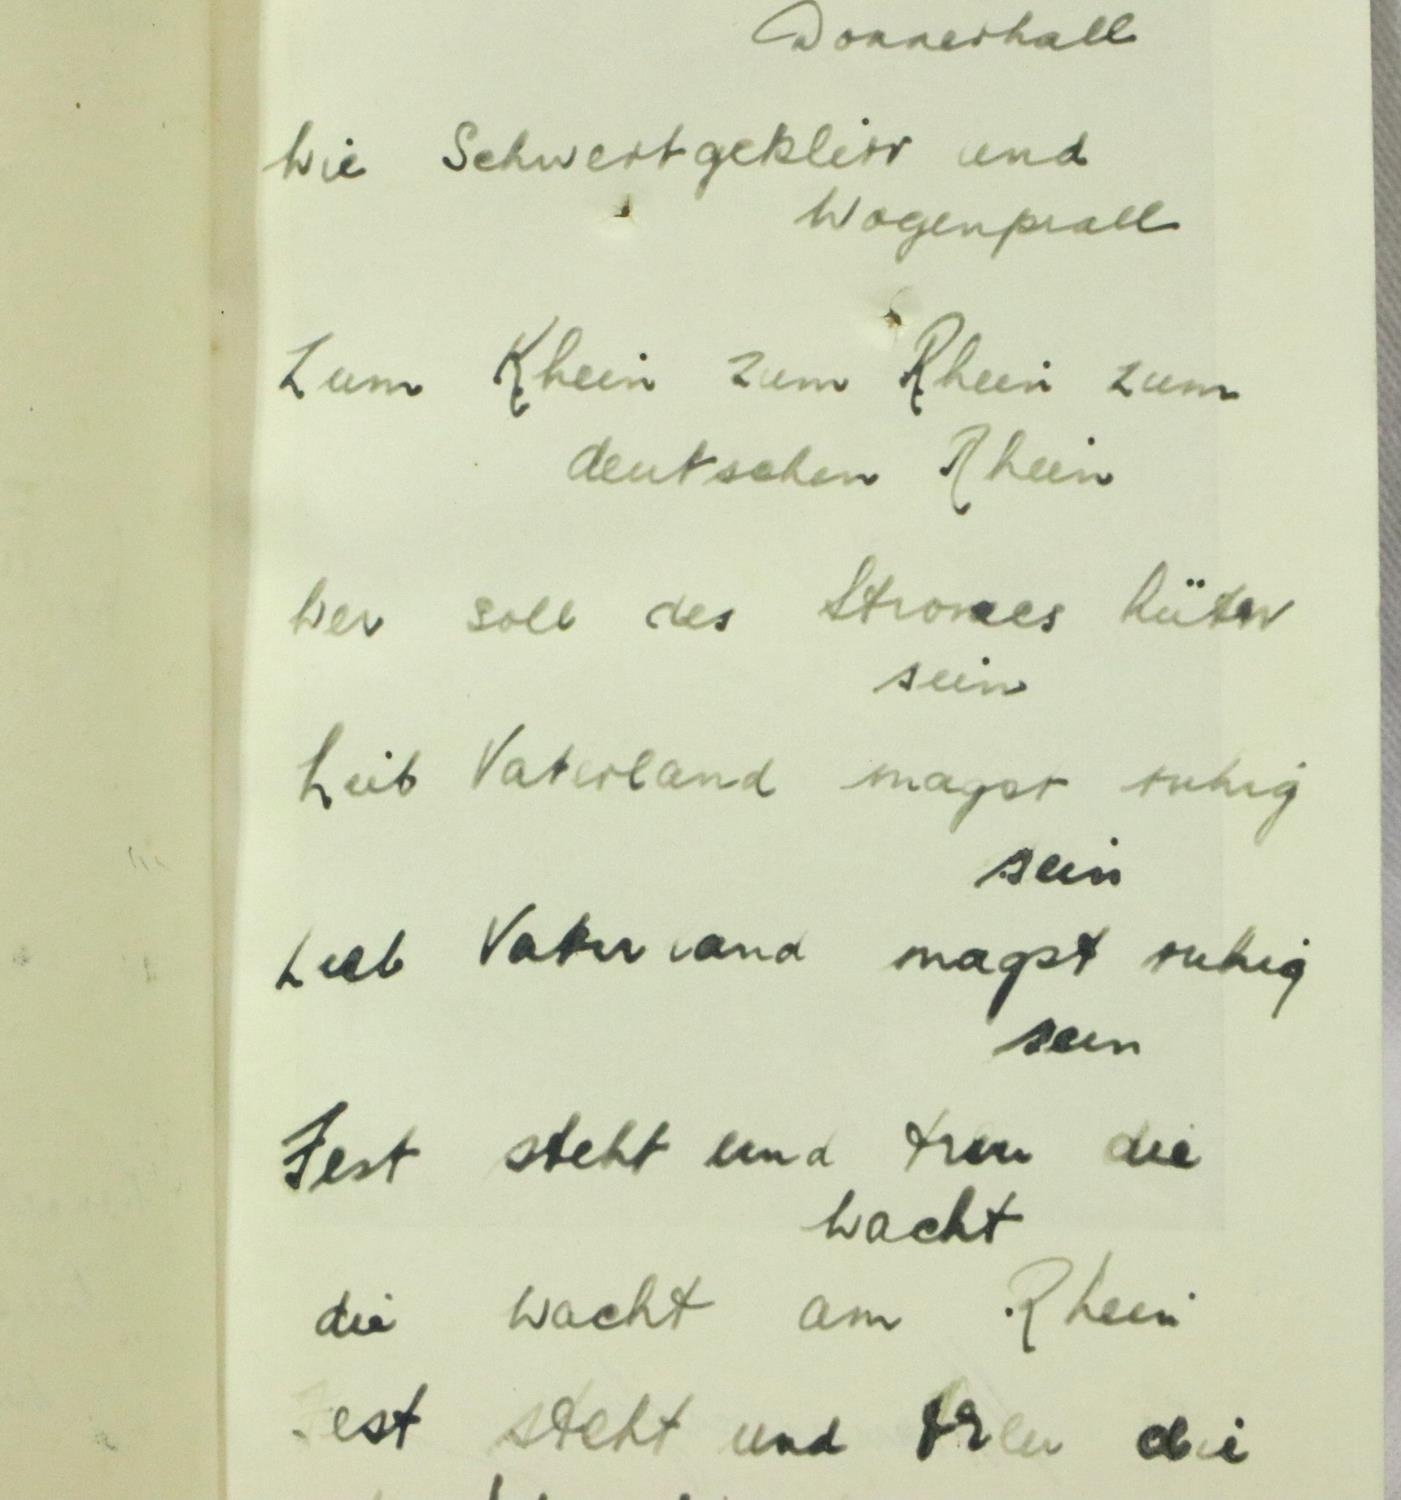 Donnerhall
Wie Schwertgeklirr und
Wogenprall
Zum Rhein zum Rhein zum
deutschen Rhein
Wer soll des Stromes hüter
sein
Leib Vaterland magst ruhig
sein
Lieb Vaterland magst ruhig
sein
Fest steht und treu die
Wacht
die Wacht am Rhein
Fest steht und treu die